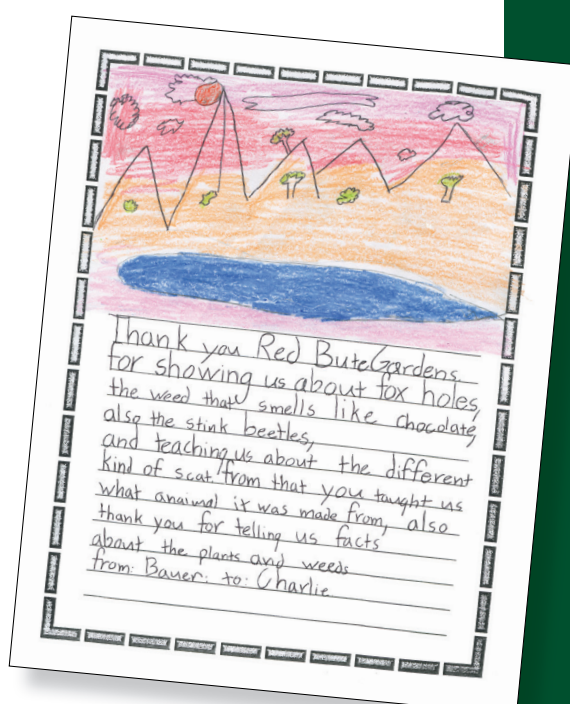 Thank you Red ButeGardens
for showing us about fox holes,
the weed that smells like chocolate,
also the stink beetles,
and teaching us about the different
kind of scat, from that you taught us
what anaimal it was made from, also
thank you for telling us facts
about the plants and weeds
from: Bauer: to: Charlie